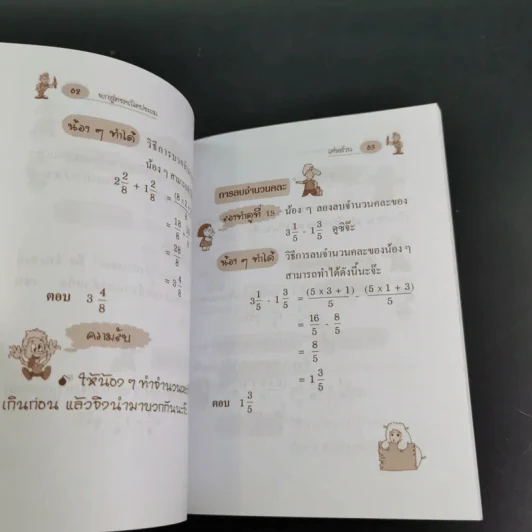 62
น้อง ๆ ทำได้
วิธีการบวกจำน
น้อง ๆ สามารถทำ
2 2/8 + 1 2/8
= (8 x
= 18/8
= 28/8
= 3 4/8
ตอบ 3 4/8
ความรับ
ให้น้อง ๆ ทำจำนวน
เกินก่อน แล้วจึงนำมาบวกกันนะจ๊ะ
เศษส่วน 63
การลบจำนวนคละ
ลองทำดูที่ 15 น้อง ๆ ลองลบจำนวนคละของ
3 1/5 - 1 3/5 ดูซิจ๊ะ
น้อง ๆ ทำได้ วิธีการลบจำนวนคละของน้อง ๆ
สามารถทำได้ดังนี้นะจ๊ะ
3 1/5 - 1 3/5 = (5 x 3 + 1)/5 - (5 x 1 + 3)/5
= 16/5 - 8/5
= 8/5
= 1 3/5
ตอบ 1 3/5